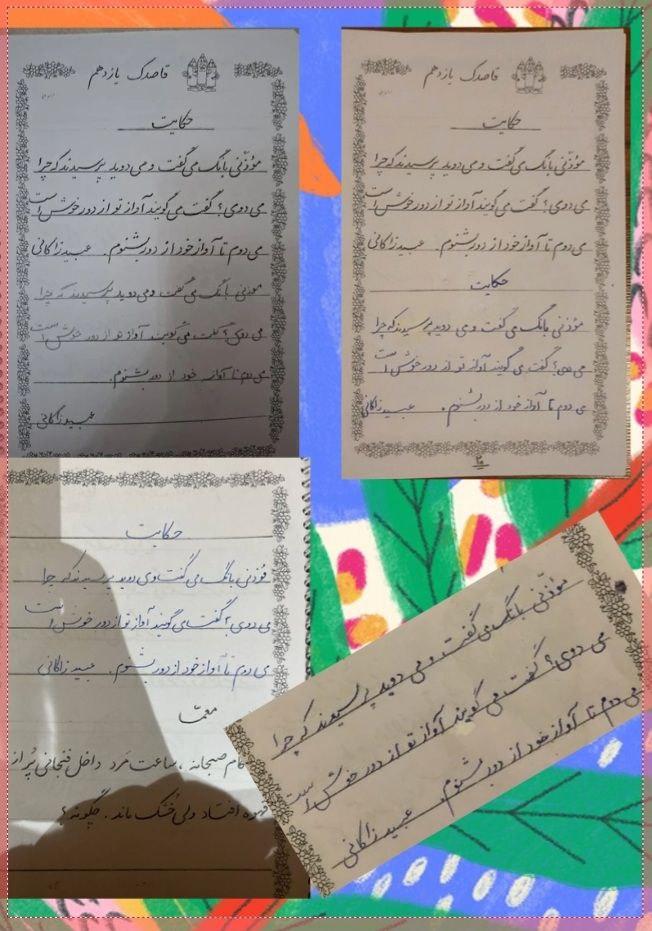 قاصدک یازدهم
حکایت
مؤذّنی بانگ می‌گفت و می دوید پرسیدند که چرا
می دوی؟ گفت می گویند آواز تو از دور خوش است
می دوم تا آواز خود از دور بشنوم. عبید زاکانی
موذنی بانگ می گفت و می دوید پرسیدند که چرا
می دوی؟ گفت می گویند آواز تو از دور خوش است
می دوم تا آواز خود از دور بشنوم.
عبید زاکانی
قاصدک یازدهم
حکایت
مؤذّنی بانگ می‌گفت و می دوید پرسیدند که چرا
می دوی؟ گفت می گویند آواز تو از دور خوش است
می دوم تا آواز خود از دور بشنوم. عبید زاکانی
حکایت
مؤذنی بانگ می گفت و می دوید پرسیدند که چرا
می دوی؟ گفت می گویند آواز تو از دور خوش است
می دوم تا آواز خود از دور بشنوم. عبید زاکانی
حکایت
مؤذنی بانگ می گفت و می دوید پرسیدند که چرا
می دوی؟ گفت می گویند آواز تو از دور خوش است
می دوم تا آواز خود از دور بشنوم. عبید زاکانی
معمّا
صبحانه، ساعت مَرد داخل فنجانی پُر از
قهوه افتاد ولی خشک ماند. چگونه؟
مؤذّنی بانگ می گفت و می دوید پرسیدند که چرا
می دوی؟ گفت می گویند آواز تو از دور خوش است
می دوم تا آواز خود از دور بشنوم.
عبید زاکانی